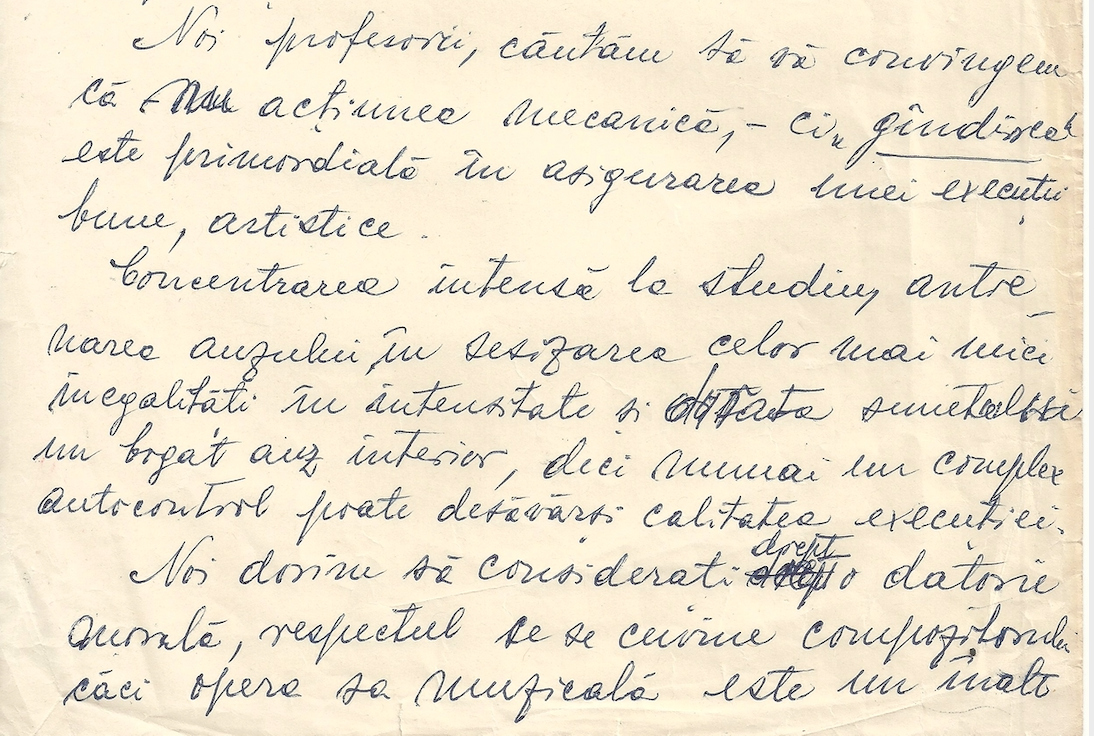 Noi profesorii, căutăm să vă convingem
că nu acțiunea mecanică, – ci „gîndirea"
este primordială în asigurarea unei execuții
bune, artistice.
Concentrarea intensă la studiu, antre
narea auzului, în sesizarea celor mai mici
inegalități în intensitate și durata sunetului și
un bogat auz interior, deci numai un complex
autocontrol poate desăvârși calitatea execuției.
Noi dorim să considerați drept o datorie
morală, respectul ce se cuvine compozitorului
căci opera sa muzicală este un înalt